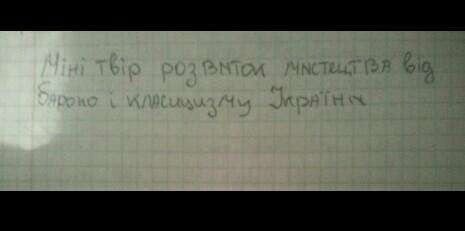 Міні твір розвиток мистецтва від
бароко і класицизму України